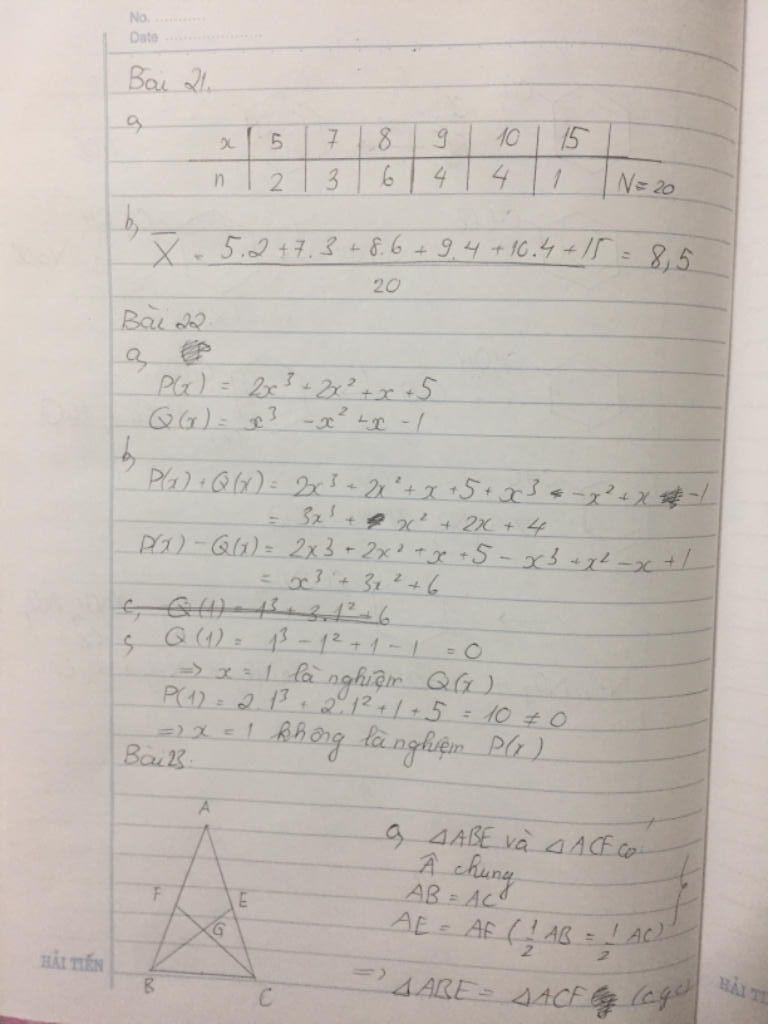 No. ............
Date ........................
Bài 21.
a,
x | 5 | 7 | 8 | 9 | 10 | 15 |
n | 2 | 3 | 6 | 4 | 4 | 1 | N = 20
b,
X̅ = 5.2 + 7.3 + 8.6 + 9.4 + 10.4 + 15 / 20 = 8,5
Bài 22.
a,
P(x) = 2x³ + 2x² + x + 5
Q(x) = x³ - x² + x - 1
b,
P(x) + Q(x) = 2x³ + 2x² + x + 5 + x³ - x² + x - 1
= 3x³ + x² + 2x + 4
P(x) - Q(x) = 2x3 + 2x² + x + 5 - x3 + x² - x + 1
= x³ + 3x² + 6
c, Q(1) = 1³ + 3.1² + 6
c, Q(1) = 1³ - 1² + 1 - 1 = 0
=> x = 1 là nghiệm Q(x)
P(1) = 2.1³ + 2.1² + 1 + 5 = 10 ≠ 0
=> x = 1 không là nghiệm P(x)
Bài 23.
A
F E
G
B C
a, △ABE và △ACF có
Â chung
AB = AC
AE = AF (1/2 AB = 1/2 AC)
=> △ABE = △ACF (c.g.c)
HẢI TIẾN
HẢI TI